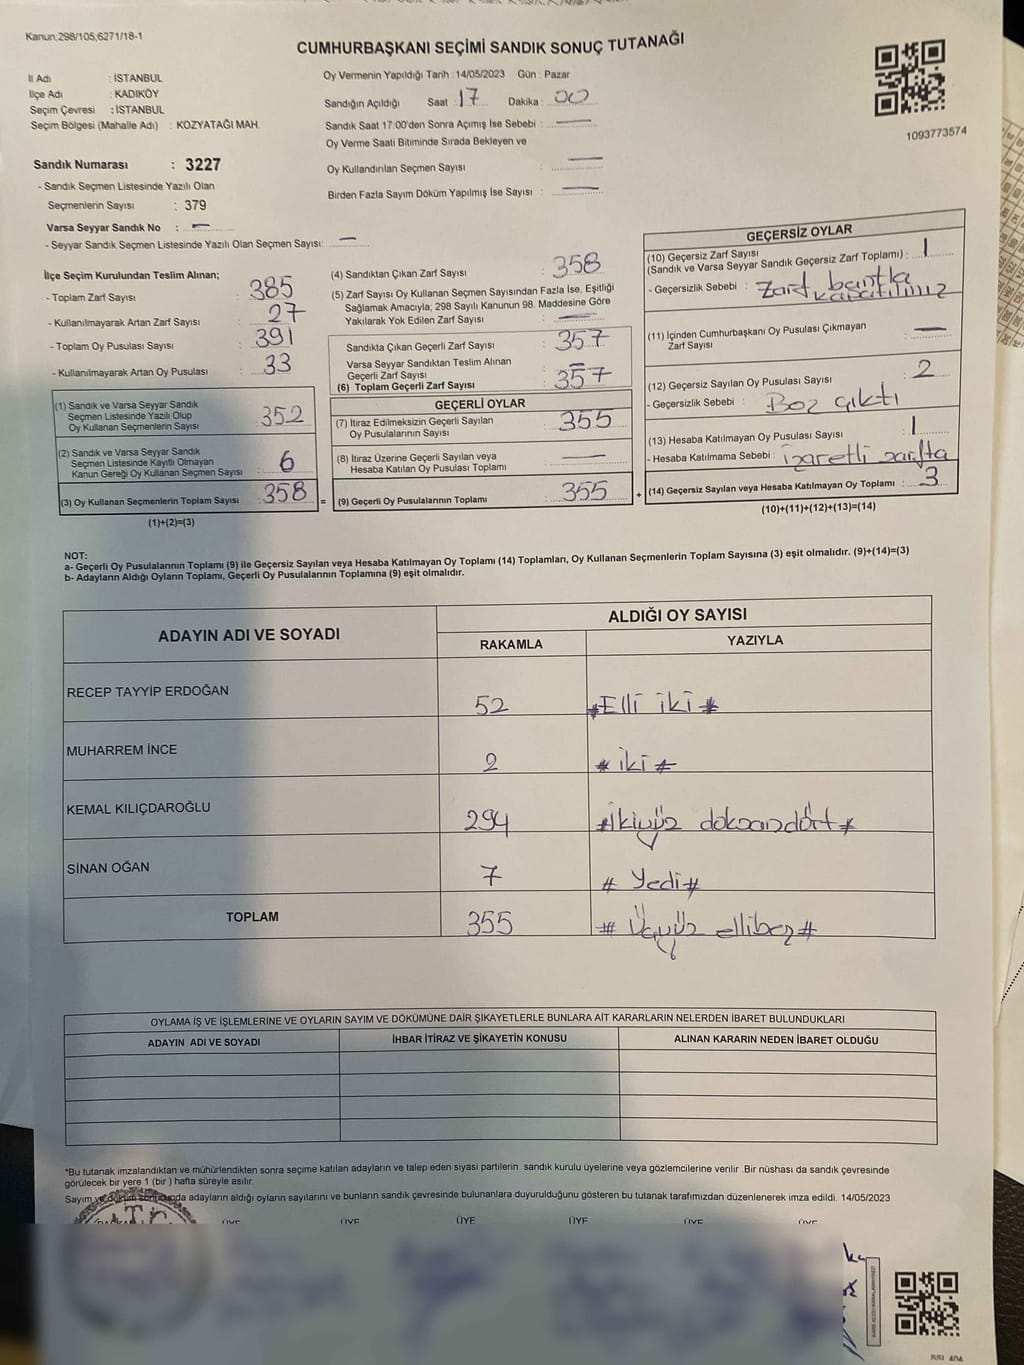 Kanun;298/105;6271/18-1
CUMHURBAŞKANI SEÇİMİ SANDIK SONUÇ TUTANAĞI
İl Adı : İSTANBUL
İlçe Adı : KADIKÖY
Seçim Çevresi : İSTANBUL
Seçim Bölgesi (Mahalle Adı) : KOZYATAĞI MAH.
Oy Vermenin Yapıldığı Tarih : 14/05/2023 Gün : Pazar
Sandığın Açıldığı Saat : 17 Dakika : 00
Sandık Saat 17:00'den Sonra Açımış İse Sebebi : —
Oy Verme Saati Bitiminde Sırada Bekleyen ve
Oy Kullandırılan Seçmen Sayısı : —
Birden Fazla Sayım Döküm Yapılmış İse Sayısı : —
1093773574
Sandık Numarası : 3227
- Sandık Seçmen Listesinde Yazılı Olan
Seçmenlerin Sayısı : 379
Varsa Seyyar Sandık No : —
- Seyyar Sandık Seçmen Listesinde Yazılı Olan Seçmen Sayısı: —
İlçe Seçim Kurulundan Teslim Alınan;
- Toplam Zarf Sayısı : 385
- Kullanılmayarak Artan Zarf Sayısı : 27
- Toplam Oy Pusulası Sayısı : 391
- Kullanılmayarak Artan Oy Pusulası : 33
(1) Sandık ve Varsa Seyyar Sandık
Seçmen Listesinde Yazılı Olup
Oy Kullanan Seçmenlerin Sayısı : 352
(2) Sandık ve Varsa Seyyar Sandık
Seçmen Listesinde Kayıtlı Olmayan
Kanun Gereği Oy Kullanan Seçmen Sayısı : 6
(3) Oy Kullanan Seçmenlerin Toplam Sayısı : 358 =
(1)+(2)=(3)
(4) Sandıktan Çıkan Zarf Sayısı : 358
(5) Zarf Sayısı Oy Kullanan Seçmen Sayısından Fazla İse, Eşitliği
Sağlamak Amacıyla; 298 Sayılı Kanunun 98. Maddesine Göre
Yakılarak Yok Edilen Zarf Sayısı : —
Sandıkta Çıkan Geçerli Zarf Sayısı : 357
Varsa Seyyar Sandıktan Teslim Alınan
Geçerli Zarf Sayısı : —
(6) Toplam Geçerli Zarf Sayısı : 357
GEÇERLİ OYLAR
(7) İtiraz Edilmeksizin Geçerli Sayılan
Oy Pusulalarının Sayısı : 355
(8) İtiraz Üzerine Geçerli Sayılan veya
Hesaba Katılan Oy Pusulası Toplamı : —
(9) Geçerli Oy Pusulalarının Toplamı : 355 +
GEÇERSİZ OYLAR
(10) Geçersiz Zarf Sayısı
(Sandık ve Varsa Seyyar Sandık Geçersiz Zarf Toplamı) : 1
- Geçersizlik Sebebi : Zarf bantla
kapatılmış
(11) İçinden Cumhurbaşkanı Oy Pusulası Çıkmayan
Zarf Sayısı : —
(12) Geçersiz Sayılan Oy Pusulası Sayısı : 2
- Geçersizlik Sebebi : Boş çıktı
(13) Hesaba Katılmayan Oy Pusulası Sayısı : 1
- Hesaba Katılmama Sebebi : işaretli zarfta
(14) Geçersiz Sayılan veya Hesaba Katılmayan Oy Toplamı : 3
(10)+(11)+(12)+(13)=(14)
NOT:
a- Geçerli Oy Pusulalarının Toplamı (9) ile Geçersiz Sayılan veya Hesaba Katılmayan Oy Toplamı (14) Toplamları, Oy Kullanan Seçmenlerin Toplam Sayısına (3) eşit olmalıdır. (9)+(14)=(3)
b- Adayların Aldığı Oyların Toplamı, Geçerli Oy Pusulalarının Toplamına (9) eşit olmalıdır.
ADAYIN ADI VE SOYADI
ALDIĞI OY SAYISI
RAKAMLA YAZIYLA
RECEP TAYYİP ERDOĞAN 52 #Elli iki#
MUHARREM İNCE 2 # iki #
KEMAL KILIÇDAROĞLU 294 #ikiyüz doksandört#
SİNAN OĞAN 7 # Yedi#
TOPLAM 355 # Üçyüz ellibeş#
OYLAMA İŞ VE İŞLEMLERİNE VE OYLARIN SAYIM VE DÖKÜMÜNE DAİR ŞİKAYETLERLE BUNLARA AİT KARARLARIN NELERDEN İBARET BULUNDUKLARI
ADAYIN ADI VE SOYADI İHBAR İTİRAZ VE ŞİKAYETİN KONUSU ALINAN KARARIN NEDEN İBARET OLDUĞU
*Bu tutanak imzalandıktan ve mühürlendikten sonra seçime katılan adayların ve talep eden siyasi partilerin sandık kurulu üyelerine veya gözlemcilerine verilir .Bir nüshası da sandık çevresinde
görülecek bir yere 1 (bir ) hafta süreyle asılır.
Sayım ve döküm sonucunda adayların aldığı oyların sayılarını ve bunların sandık çevresinde bulunanlara duyurulduğunu gösteren bu tutanak tarafımızdan düzenlenerek imza edildi. 14/05/2023
ÜYE ÜYE ÜYE ÜYE ÜYE ÜYE